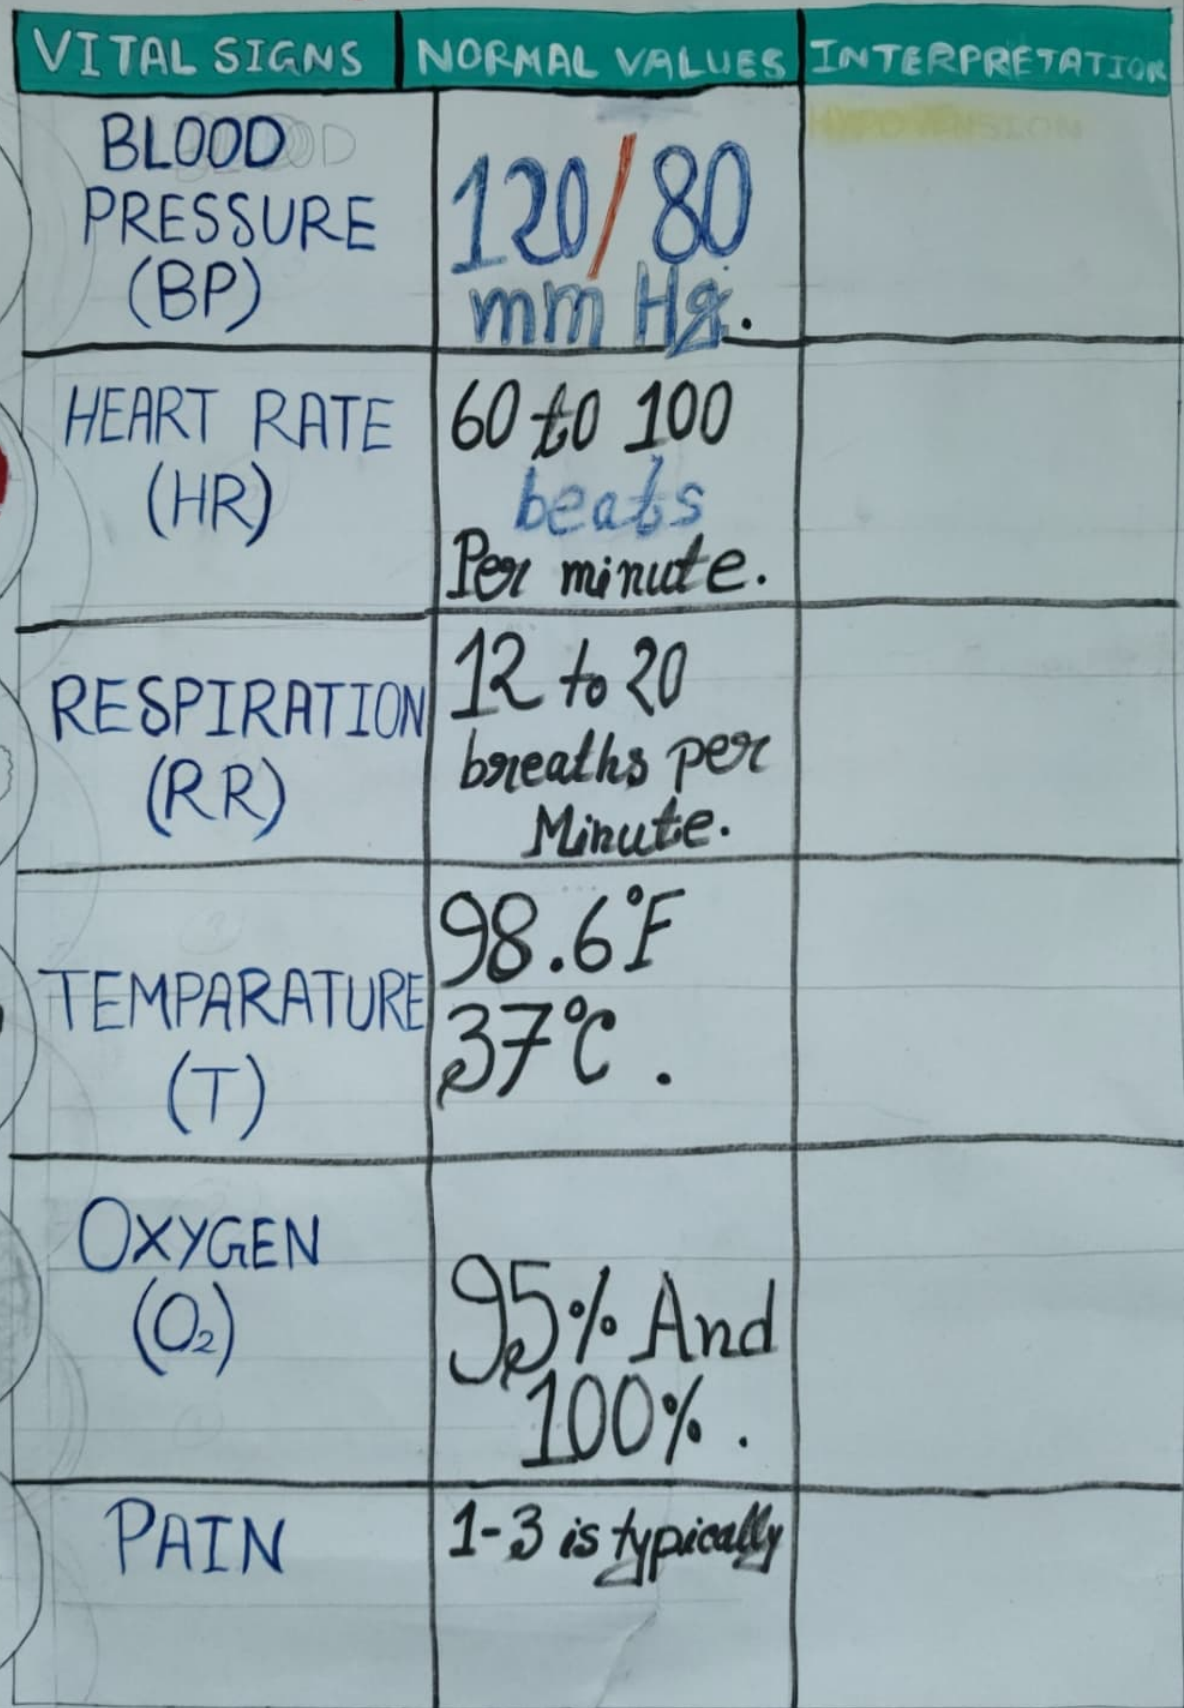 VITAL SIGNS NORMAL VALUES INTERPRETATION
BLOOD
PRESSURE
(BP)
120/80
mm Hg.
HYPOTENSION
HEART RATE
(HR)
60 to 100
beats
Per minute.
RESPIRATION
(RR)
12 to 20
breaths per
Minute.
TEMPARATURE
(T)
98.6°F
37°C.
OXYGEN
(O₂)
95% And
100%.
PAIN
1-3 is typically